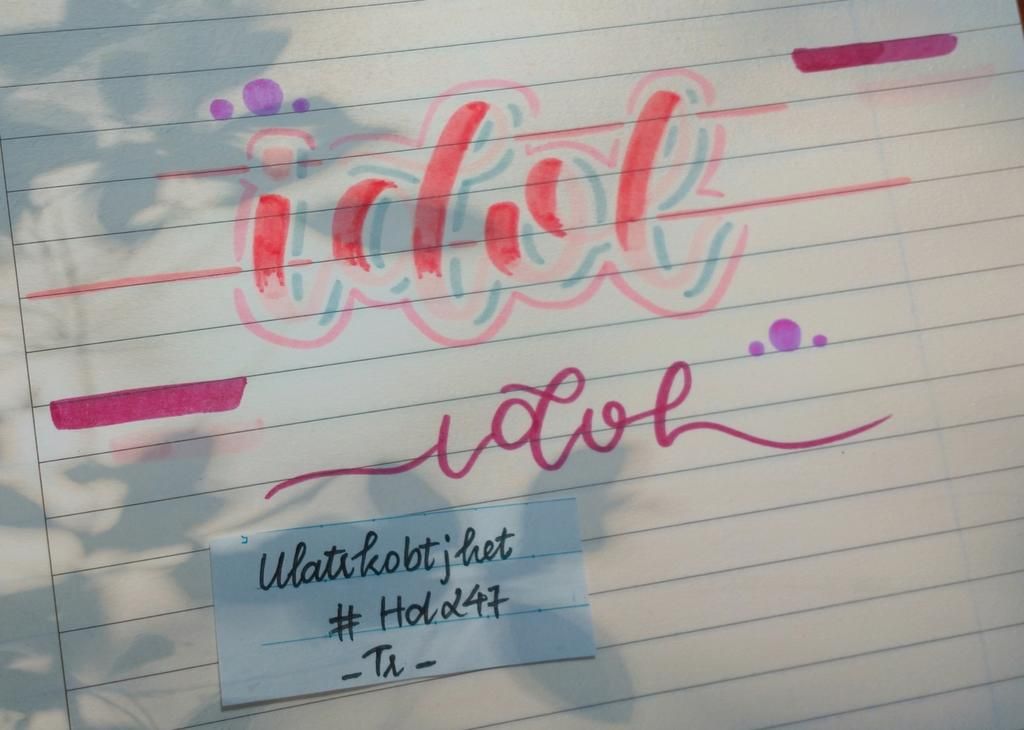 idol
idol
Ulatikobtjhet
# Hold247
-Tr-